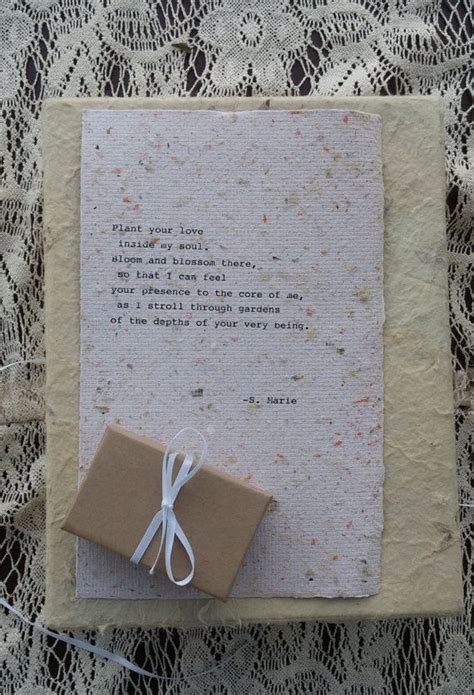 Plant your love
inside my soul.
Bloom and blossom there,
so that I can feel
your presence to the core of me,
as I stroll through gardens
of the depths of your very being.
-S. Marie